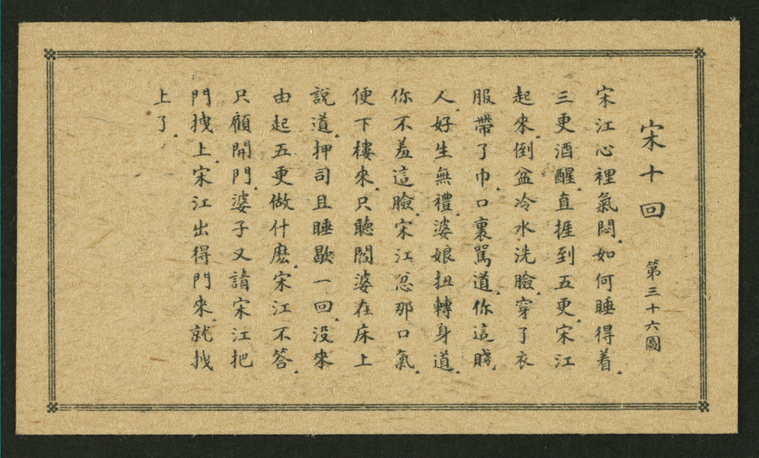 宋十回
第三十六圖
宋江心裡氣悶.如何睡得着.
三更酒醒.直捱到五更.宋江
起來.倒盆冷水洗臉.穿了衣
服帶了巾.口裏罵道.你這賤
人.好生無禮.婆娘扭轉身道.
你不羞這臉.宋江忍那口氣.
便下樓來.只聽閻婆在床上
說道.押司且睡歇一回.没來
由起五更做什麽.宋江不答.
只顧開門.婆子又請宋江把
門拽上.宋江出得門來.就拽
上了.